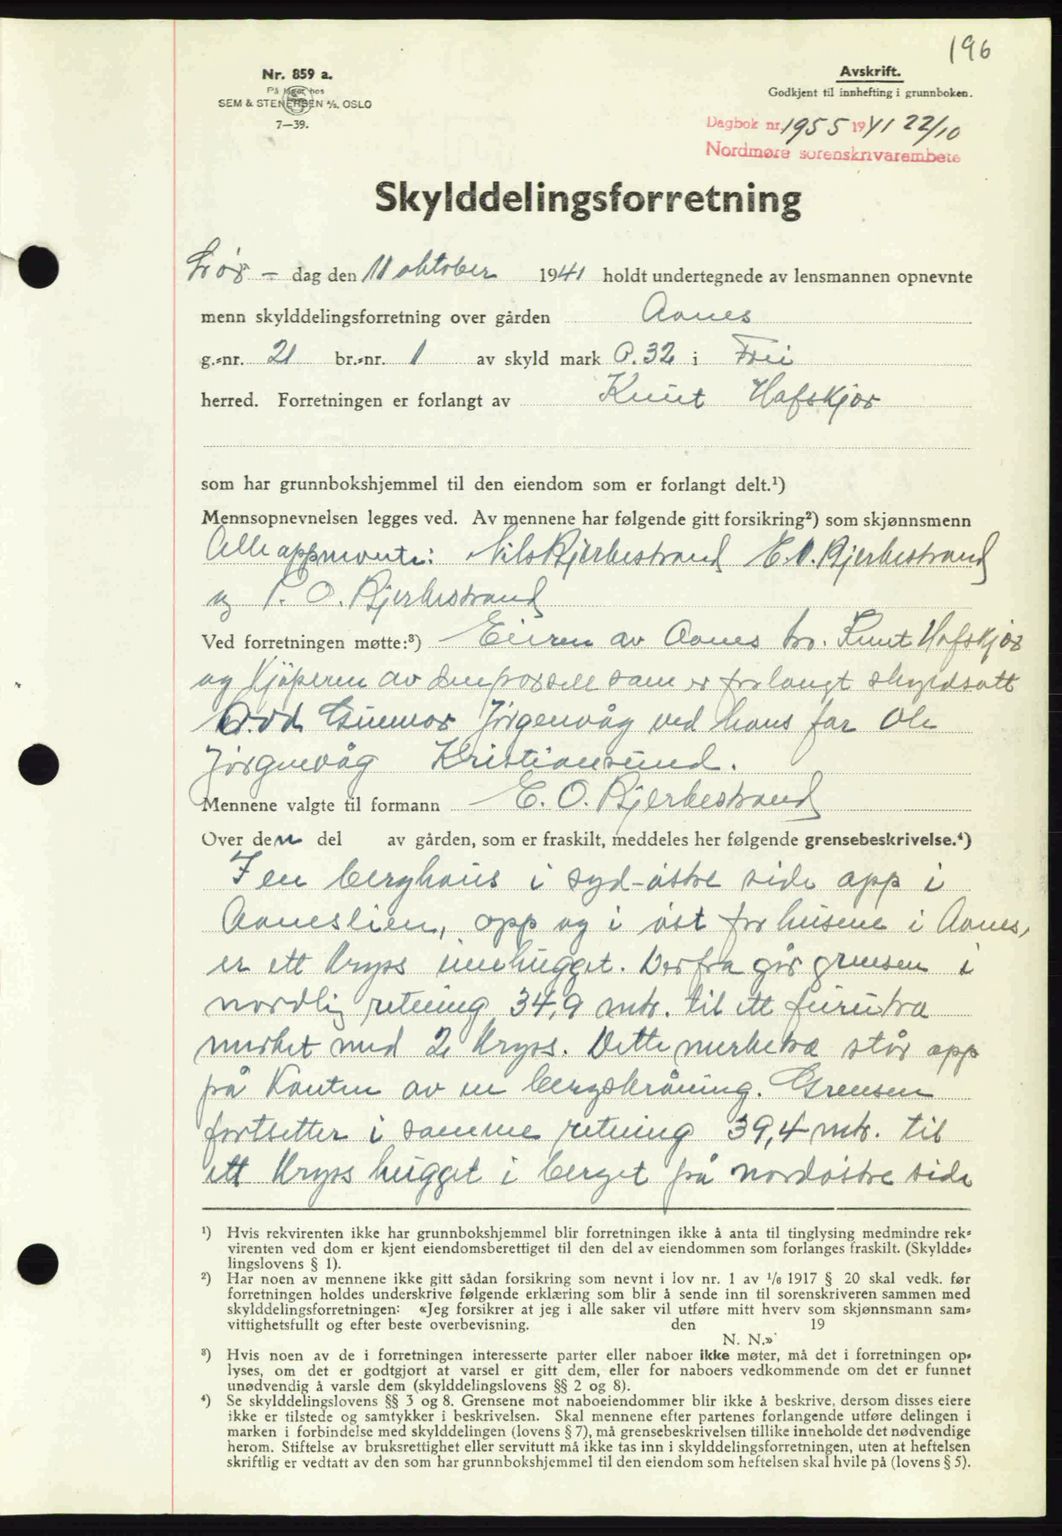 196
Nr. 859 a.
På lager hos
SEM & STENERSEN A/S. OSLO
7—39.
Avskrift.
Godkjent til innhefting i grunnboken.
Dagbok nr. 1955 1941 22/10
Nordmøre sorenskrivarembete
Skylddelingsforretning
Lør - dag den 11 oktober 1941 holdt undertegnede av lensmannen opnevnte
menn skylddelingsforretning over gården Aanes
g.-nr. 21 br.-nr. 1 av skyld mark 0.32 i Frei
herred. Forretningen er forlangt av Knut Hafskjør
som har grunnbokshjemmel til den eiendom som er forlangt delt.¹)
Mennsopnevnelsen legges ved. Av mennene har følgende gitt forsikring²) som skjønnsmenn
Alle oppnevnte: Nils Bjerkestrand E.O. Bjerkestrand
og P. O. Bjerkestrand
Ved forretningen møtte:³) Eieren av Aanes br. Knut Hafskjør
og kjøperen av den parsell som er forlangt skyldsatt
Odd Gunnar Jørgenvåg ved hans far Ole
Jørgenvåg Kristiansund.
Mennene valgte til formann E. O. Bjerkestrand
Over den del av gården, som er fraskilt, meddeles her følgende grensebeskrivelse.⁴)
I en berghaus i syd-østre side opp i
Aaneslien, opp og i øst for husene i Aanes,
er ett kryss innhugget. Derfra går grensen i
nordlig retning 34,9 mtr. til ett furutre
merket med 2 kryss. Dette merketre står opp
på kanten av en bergskråning. Grensen
fortsetter i samme retning 39,4 mtr. til
ett kryss hugget i berget på nordøstre side
¹) Hvis rekvirenten ikke har grunnbokshjemmel blir forretningen ikke å anta til tinglysing medmindre rek-
virenten ved dom er kjent eiendomsberettiget til den del av eiendommen som forlanges fraskilt. (Skyldde-
lingslovens § 1).
²) Har noen av mennene ikke gitt sådan forsikring som nevnt i lov nr. 1 av 1/6 1917 § 20 skal vedk. før
forretningen holdes underskrive følgende erklæring som blir å sende inn til sorenskriveren sammen med
skylddelingsforretningen: «Jeg forsikrer at jeg i alle saker vil utføre mitt hverv som skjønnsmann sam-
vittighetsfullt og efter beste overbevisning. den 19
N. N.»
³) Hvis noen av de i forretningen interesserte parter eller naboer ikke møter, må det i forretningen op-
lyses, om det er godtgjort at varsel er gitt dem, eller for naboers vedkommende om det er funnet
unødvendig å varsle dem (skylddelingslovens §§ 2 og 8).
⁴) Se skylddelingslovens §§ 3 og 8. Grensene mot naboeiendommer blir ikke å beskrive, dersom disses eiere
ikke er tilstede og samtykker i beskrivelsen. Skal mennene efter partenes forlangende utføre delingen i
marken i forbindelse med skylddelingen (lovens § 7), må grensebeskrivelsen tillike inneholde det nødvendige
herom. Stiftelse av bruksrettighet eller servitutt må ikke tas inn i skylddelingsforretningen, uten at heftelsen
skriftlig er vedtatt av den som har grunnbokshjemmel til den eiendom som heftelsen skal hvile på (lovens § 5).